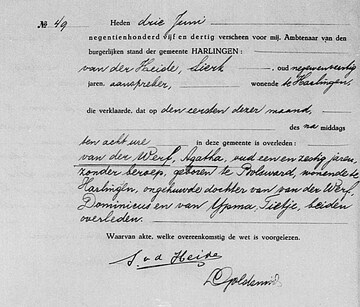 № 49 Heden drie Juni
negentienhonderd vijf en dertig verscheen voor mij, Ambtenaar van den
burgerlijken stand der gemeente HARLINGEN:
van der Heide, Sierk, oud negenenveertig
jaren, aanspreker, wonende te Harlingen,
die verklaarde, dat op den eersten dezer maand,
des namiddags
ten acht ure in deze gemeente is overleden:
van der Werf, Agatha, oud een en zestig jaren,
zonder beroep, geboren te Bolsward, wonende te
Harlingen, ongehuwde dochter van van der Werf,
Dominicus en van Ypma, Tietje, beiden
overleden.
Waarvan akte, welke overeenkomstig de wet is voorgelezen.
S. v. d. Heide